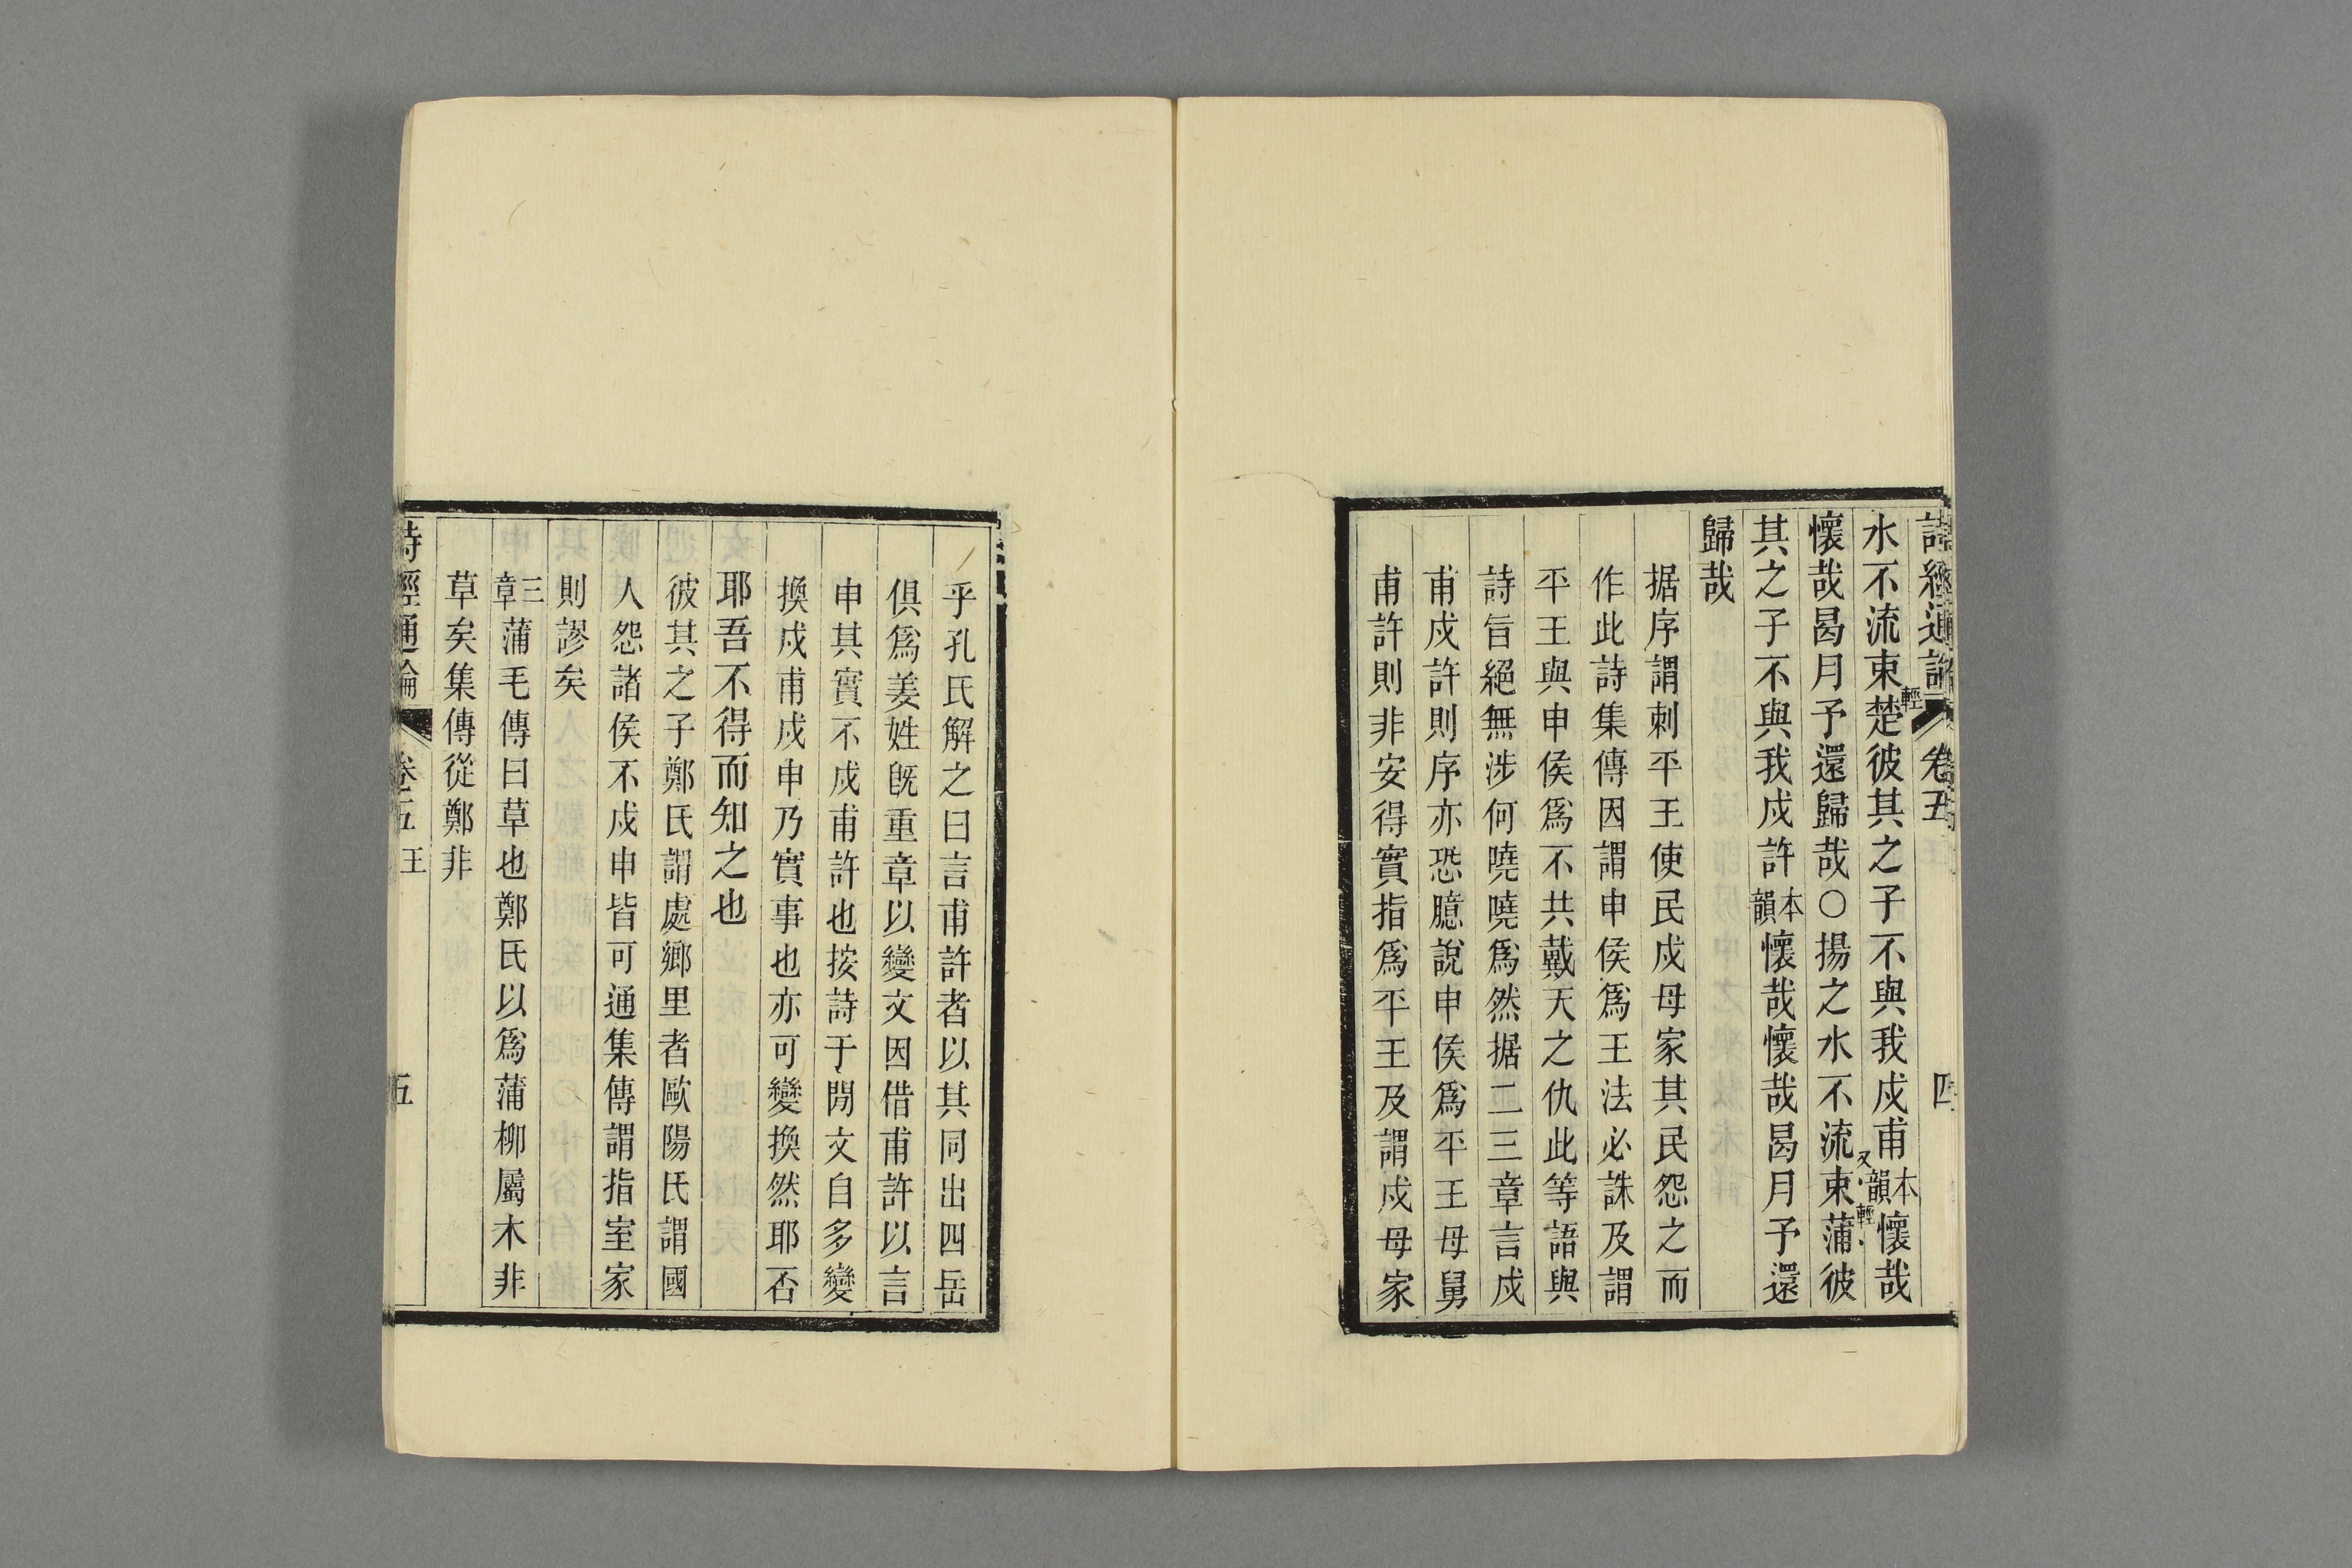 詩經通論 卷五 四
水不流束楚輕彼其之子不與我戍甫本韻懷哉
懷哉曷月予還歸哉○揚之水不流束蒲又輕彼
其之子不與我戍許本韻懷哉懷哉曷月予還
歸哉
据序謂刺平王使民戍母家其民怨之而
作此詩集傳因謂申侯爲王法必誅及謂
平王與申侯爲不共戴天之仇此等語與
詩旨絕無涉何嘵嘵爲然据二三章言戍
甫戍許則序亦恐臆說申侯爲平王母舅
甫許則非安得實指爲平王及謂戍母家
乎孔氏解之曰言甫許者以其同出四岳
俱爲姜姓旣重章以變文因借甫許以言
申其實不戍甫許也按詩于閒文自多變
換戍甫戍申乃實事也亦可變換然耶否
耶吾不得而知之也
彼其之子鄭氏謂處鄉里者歐陽氏謂國
人怨諸侯不戍申皆可通集傳謂指室家
則謬矣
三章蒲毛傳曰草也鄭氏以爲蒲柳屬木非
草矣集傳從鄭非
詩經通論 卷五 王 五